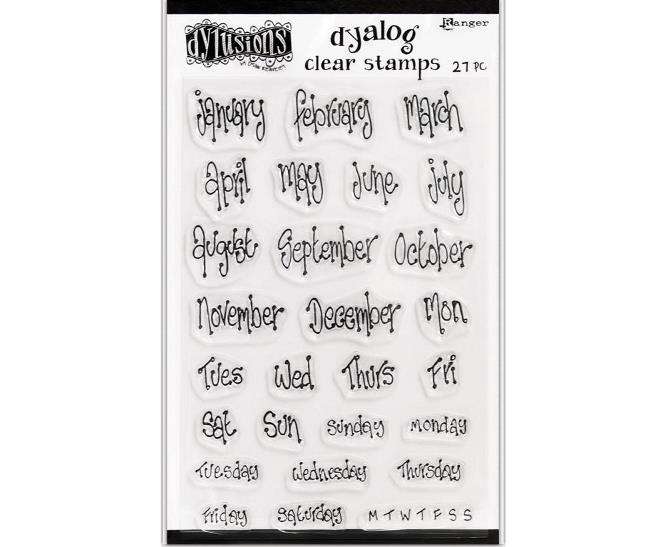 dylusions dyalog Ranger
by Dyan Reaveley clear stamps 27 PC
january february march
april may June july
august September October
November December Mon
Tues Wed Thurs Fri
Sat Sun Sunday monday
Tuesday Wednesday Thursday
Friday Saturday M T W T F S S